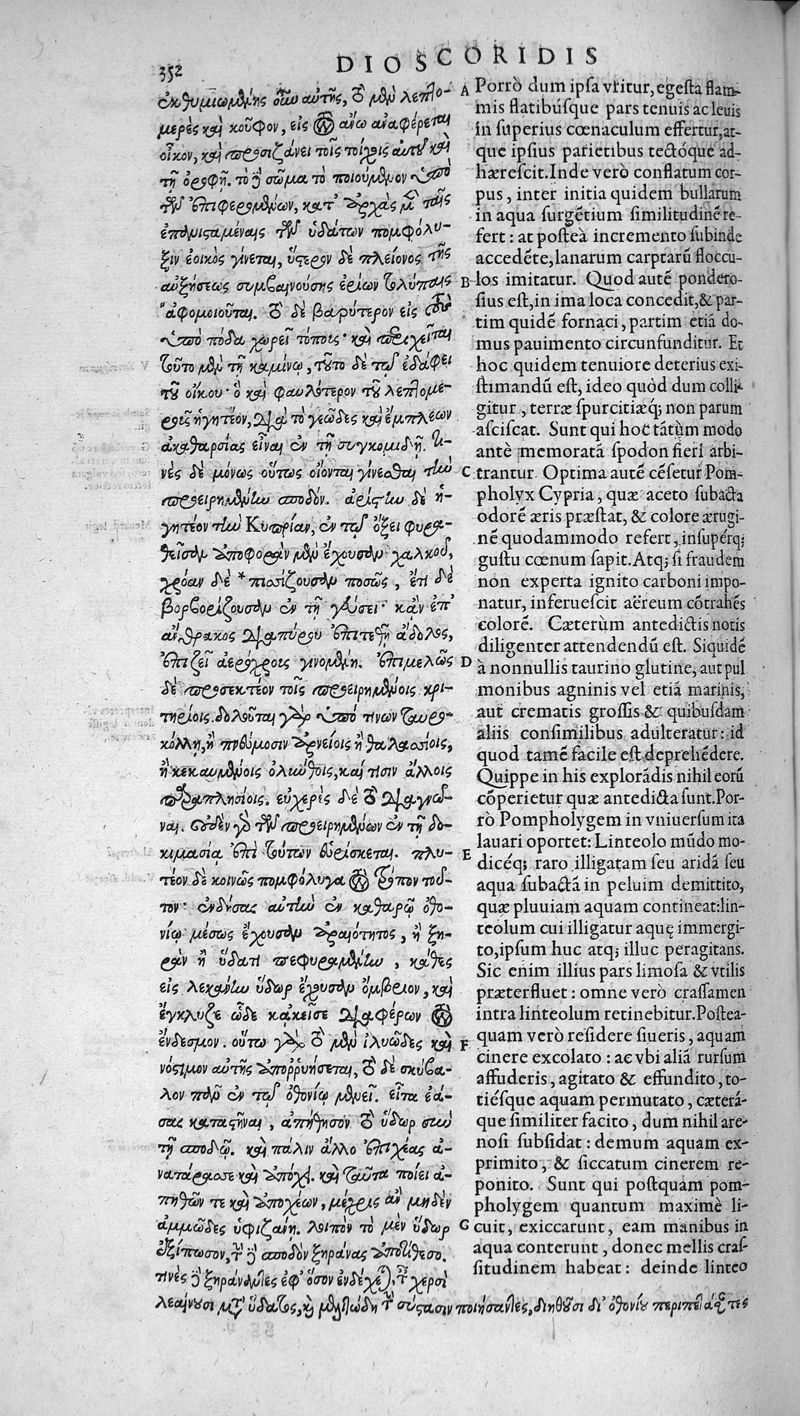 352
DIOSCORIDIS
ἐκθυμιωμένης οὖν αὐτῆς, τὸ μὲν λεπτο-
μερὲς καὶ κοῦφον, εἰς τὸν ἄνω ἀναφέρεται
οἶκον, καὶ προσιζάνει τοῖς τοίχοις αὐτοῦ καὶ
τῇ ὀροφῇ. τὸ δὲ σῶμα τὸ ποιούμενον ὑπὸ
τῶν ἐπιφερομένων, κατ' ἀρχὰς μὲν ταῖς
ἐπανισταμέναις τῶν ὑδάτων πομφόλυ-
ξιν ἐοικὸς γίνεται, ὕστερον δὲ πλείονος τῆς
αὐξήσεως συμβαινούσης ἐρίων τολύπαις
ἀφομοιοῦται. τὸ δὲ βαρύτερον εἰς τοὺς
ὑπὸ πόδα χωρεῖ τόπους· καὶ περιχεῖται
τοῦτο μὲν τῇ καμίνῳ, τοῦτο δὲ τῷ ἐδάφει
τοῦ οἴκου· ὃ καὶ φαυλότερον τοῦ λεπτομε-
ροῦς ἡγητέον, διὰ τὸ γεῶδες καὶ ἔμπλεων
ἀκαθαρσίας εἶναι ἐν τῇ συγκομιδῇ. τι-
νὲς δὲ μόνως οὕτως οἴονται γίνεσθαι τὴν
προειρημένην σποδόν. ἀρίστην δὲ ἡ-
γητέον τὴν Κυπρίαν, ἐν τῷ ὄξει φυρα-
θεῖσαν ἀποφορὰν μὲν ἔχουσαν χαλκοῦ,
χρόαν δὲ * πισσίζουσαν ποσῶς, ἔτι δὲ
βορβορίζουσαν ἐν τῇ γεύσει· κἂν ἐπ'
ἄνθρακος διαπύρου ἐπιτεθῇ ἄδολος,
ἐπιζεῖ ἀερόχρους γινομένη. ἐπιμελῶς
δὲ προσεκτέον τοῖς προειρημένοις κρι-
τηρίοις. δολοῦται γὰρ ὑπό τινων ταυρο-
κόλλῃ, ἢ πνεύμοσιν ἀρνείοις ἢ θαλασσίοις,
ἢ κεκαυμένοις ὀλύνθοις, καί τισιν ἄλλοις
παραπλησίοις. εὐχερὲς δὲ τὸ διαγνῶ-
ναι. οὐδὲν γὰρ τῶν προειρημένων ἐν τῇ δο-
κιμασίᾳ ἐπὶ τούτων εὑρίσκεται. πλυ-
τέον δὲ κοινῶς πομφόλυγα τὸν τρόπον τοῦ-
τον· ἐνδήσας αὐτὴν ἐν καθαρῷ ὀθο-
νίῳ μέσως ἔχουσαν ἀραιότητος, ἢ ξη-
ρὰν ἢ ὕδατι πεφυραμένην, κάθες
εἰς λεκάνην ὕδωρ ἔχουσαν ὄμβριον, καὶ
ἔγκλυζε ὧδε κἀκεῖσε διαφέρων τὸν
ἔνδεσμον. οὕτω γὰρ τὸ μὲν ἰλυῶδες καὶ
νόστιμον αὐτῆς ἀπορρυήσεται, τὸ δὲ σκύβα-
λον πᾶν ἐν τῷ ὀθονίῳ μένει. εἶτα ἐά-
σας καταστῆναι, ἀπήθησον τὸ ὕδωρ σὺν
τῇ σποδῷ. καὶ πάλιν ἄλλο ἐπιχέας ἀ-
νατάρασσε καὶ ἀπόχει. καὶ ταῦτα ποίει ἀ-
πηθῶν τε καὶ ἀποχέων, μέχρις ἂν μηδὲν
ἀμμῶδες ὑφιζάνῃ. λοιπὸν τὸ μὲν ὕδωρ
ἐξίπωσον, τὴν δὲ σποδὸν ξηράνας ἀπόθεσο.
τινὲς δὲ ξηράναντες ἐφ' ὅσον ἐνδέχεται, ταῖς χερσὶ
λεαίνουσι μεθ' ὕδατος, καὶ μελιτώδη τὴν σύστασιν ποιήσαντες, διηθοῦσι δι' ὀθονίου
A Porrò dum ipsa vritur, egesta flam-
mis flatibúsque pars tenuis ac leuis
in superius cœnaculum effertur, at-
que ipsius parietibus tectóque ad-
hærescit. Inde verò conflatum cor-
pus, inter initia quidem bullarum
in aqua surgẽtium similitudinẽ re-
fert: at posteà incremento subinde
accedẽte, lanarum carptarũ floccu-
B los imitatur. Quod autẽ pondero-
sius est, in ima loca concedit, & par-
tim quidẽ fornaci, partim etiã do-
mus pauimento circunfunditur. Et
hoc quidem tenuiore deterius exi-
stimandũ est, ideo quòd dum colli-
gitur, terræ spurcitiæq; non parum
asciscat. Sunt qui hoc tãtùm modo
antè memoratã spodon fieri arbi-
C trantur. Optima autẽ cẽsetur Pom-
pholyx Cypria, quæ aceto subacta
odorẽ æris præstat, & colore ærugi-
nẽ quodammodo refert, insupérq;
gustu cœnum sapit. Atq; si fraudem
non experta ignito carboni impo-
natur, inferuescit aëreum cõtrahẽs
colorẽ. Cæterùm antedictis notis
diligenter attendendũ est. Siquidẽ
D à nonnullis taurino glutine, aut pul
monibus agninis vel etiã marinis,
aut crematis grossis & quibusdam
aliis consimilibus adulteratur: id
quod tamẽ facile est deprehẽdere.
Quippe in his explorãdis nihil eorũ
cõperietur quæ antedicta sunt. Por-
rò Pompholygem in vniuersum ita
lauari oportet: Linteolo mũdo mo-
E dicéq; raro illigatam seu aridã seu
aqua subactã in peluim demittito,
quæ pluuiam aquam contineat: lin-
teolum cui illigatur aquę immergi-
to, ipsum huc atq; illuc peragitans.
Sic enim illius pars limosa & vtilis
præterfluet: omne verò crassamen
intra linteolum retinebitur. Postea-
F quam verò residere siueris, aquam
cinere excolato: ac vbi aliã rursum
affuderis, agitato & effundito, to-
tiésque aquam permutato, cæterá-
que similiter facito, dum nihil are-
nosi subsidat: demum aquam ex-
primito, & siccatum cinerem re-
ponito. Sunt qui postquam pom-
pholygem quantum maximè li-
G cuit, exiccarunt, eam manibus in
aqua conterunt, donec mellis cras-
situdinem habeat: deinde linteo